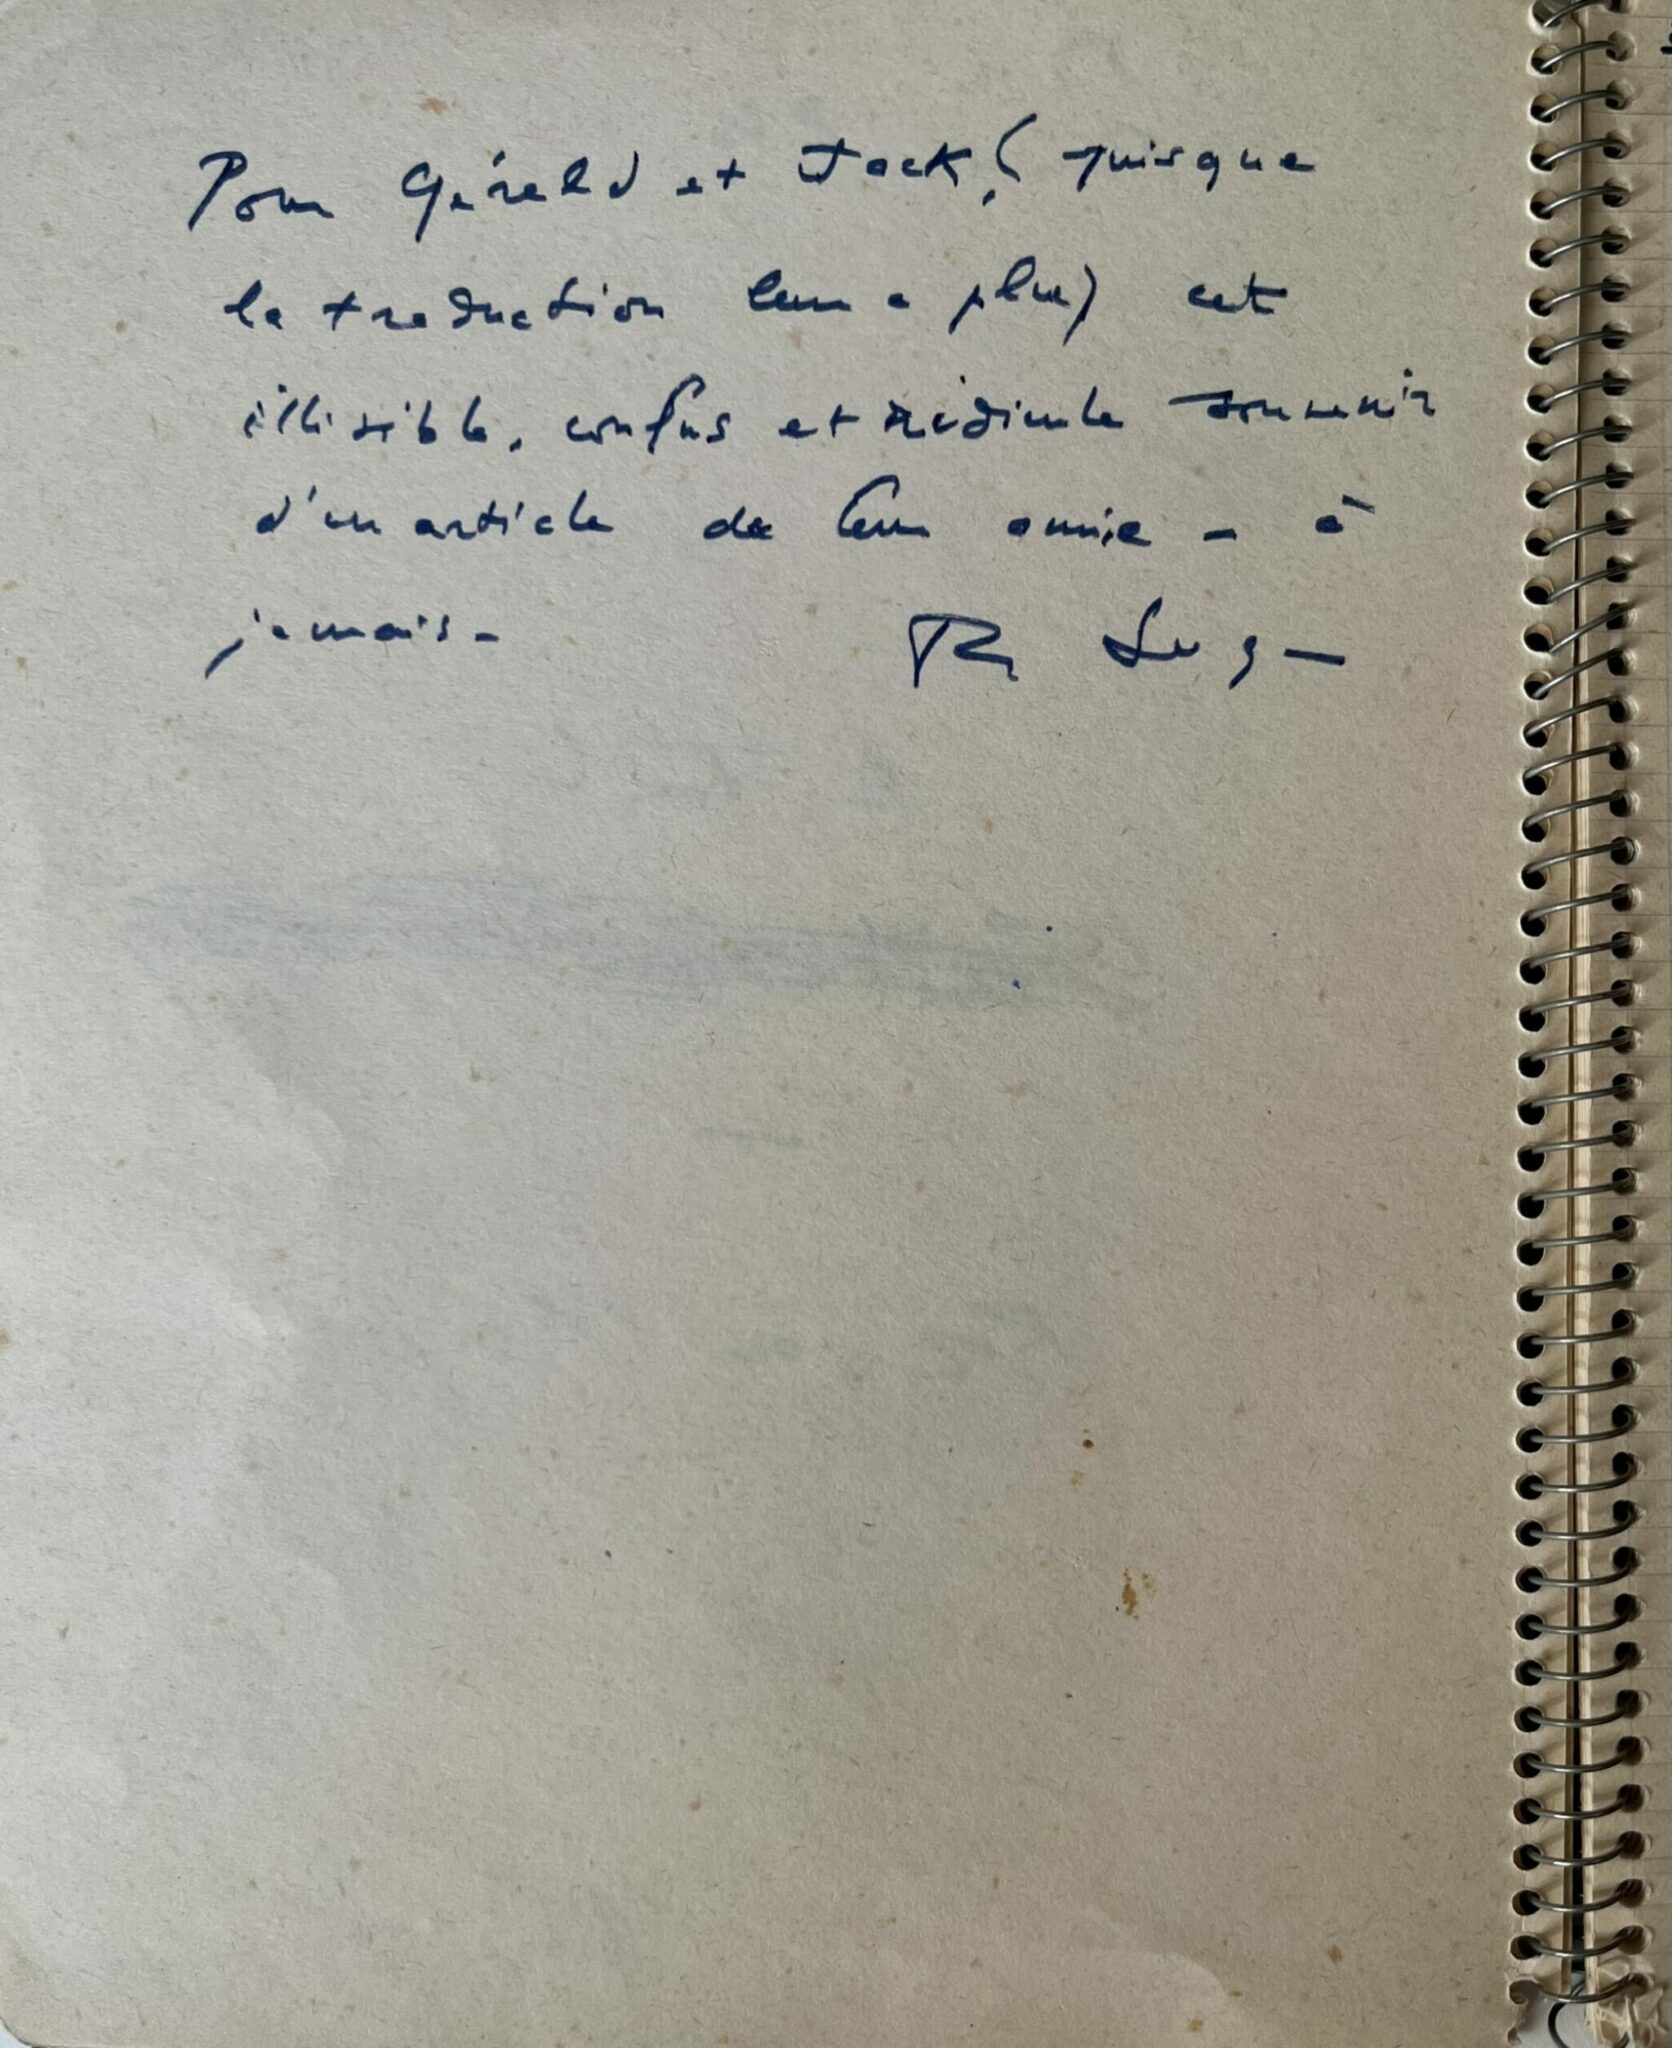 Pour Gérald et Jack, (puisque
la traduction leur a plu) cet
illisible, confus et ridicule souvenir
d'un article de leur amie - à
jamais -